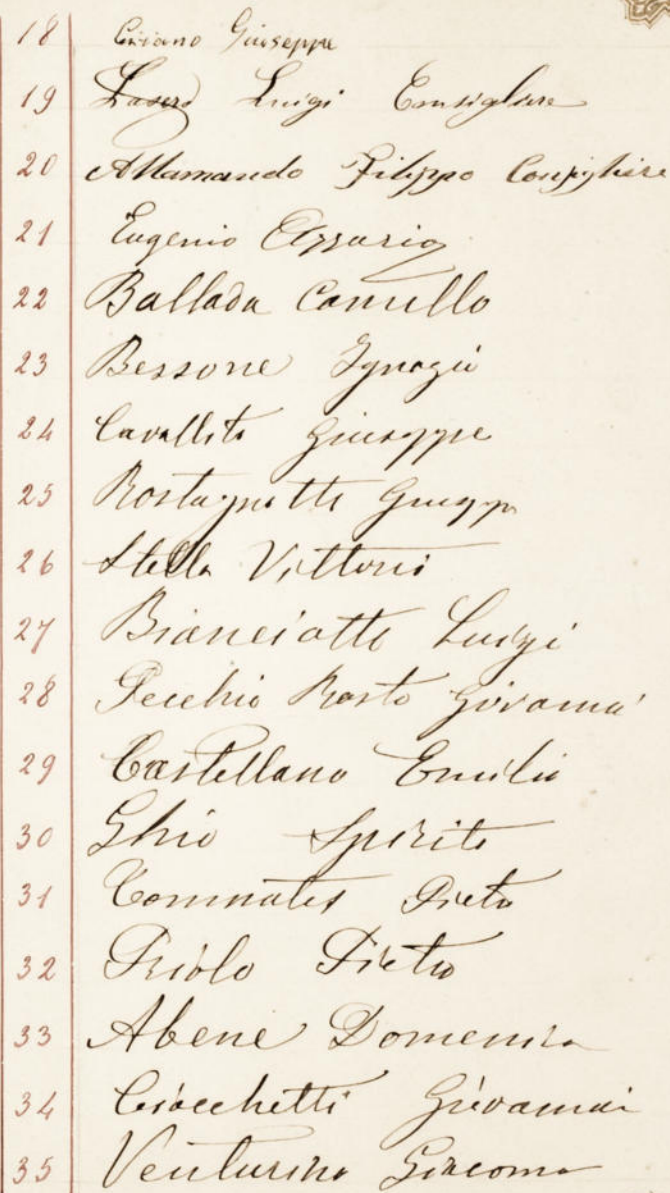 18 Ciriano Giuseppe
19 Lasero Luigi Consigliere
20 Allamando Filippo Consigliere
21 Eugenio Azzario
22 Ballada Camillo
23 Bessone Ignazio
24 Cavallito Giuseppe
25 Rostagnotti Giuseppe
26 Stella Vittorio
27 Bianciotto Luigi
28 Pecchio Rosto Giovanni
29 Castellano Emilio
30 Ghio Spirito
31 Pietro
32 Priolo Pietro
33 Abene Domenico
34 Ciocchetti Giovanni
35 Venturino Giacomo